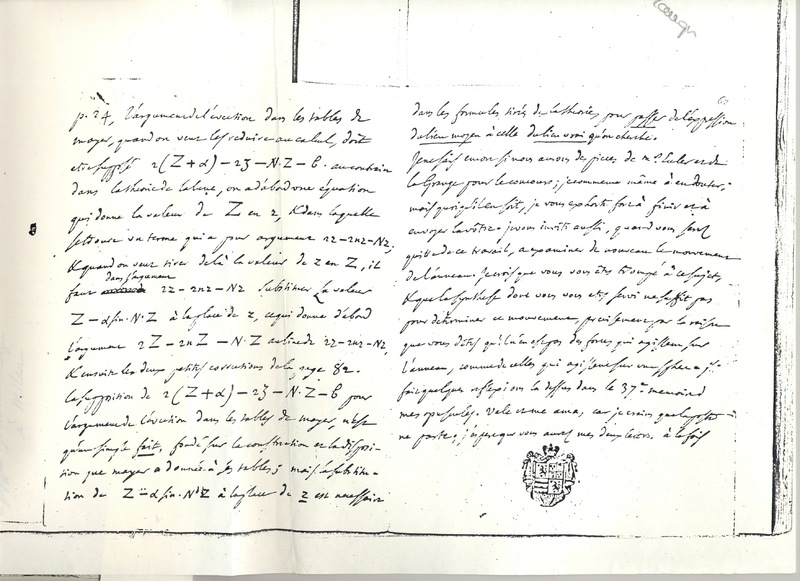 p. 24, l'argument de l'évection dans les tables de
mayer, quand on veut les réduire au calcul, doit
etre supposé 2(Z+α)−2ξ−N·Z−6. au contraire
dans la théorie de la lune, on a d'abord une équation
qui donne la valeur de Z en z, & dans laquelle
se trouve un terme qui a pour argument 2z−2nz−Nz;
& quand on veut tirer de là la valeur de z en Z, il
faut dans l'argument 2z−2nz−Nz substituer la valeur
Z−α sin. N·Z à la place de z, ce qui donne d'abord
l'argument 2Z−2nZ−N·Z au lieu de 2z−2nz−Nz,
& ensuite les deux petites corrections de la page 82.
la supposition de 2(Z+α)−2ξ−N·Z−6 pour
l'argument de l'évection dans les tables de mayer, n'est
qu'un simple fait, fondé sur la construction et la disposi-
tion que mayer a donnée à ses tables; mais la substitu-
tion de Z−α sin. N Z à la place de z est nécessaire
60
dans les formules tirées de la théorie, pour passer de l'expression
du lieu moyen à celle du lieu vrai qu'on cherche.
Je ne sais encore si nous aurons des pieces de mrs Euler et de
la Grange pour le concours; je commence même à en douter;
mais quoiqu'il en soit, je vous exhorte fort à finir et à
envoyer la vôtre. je vous invite aussi, quand vous serez
quitte de ce travail, a examiner de nouveau le mouvement
de l'anneau. Je crois que vous vous êtes trompé à ce sujet,
& que la synthese dont vous vous etes servi ne suffit pas
pour déterminer ce mouvement, précisément par la raison
que vous dites qu'il n'en est pas des forces qui agissent sur
l'anneau, comme de celles qui agissent sur une sphere. j'ai
fait quelques reflexions la dessus dans le 37e memoire de
mes opuscules. Vale et me ama, car je crains que la poste
ne parte; j'espere que vous aurez mes deux lettres à la fois